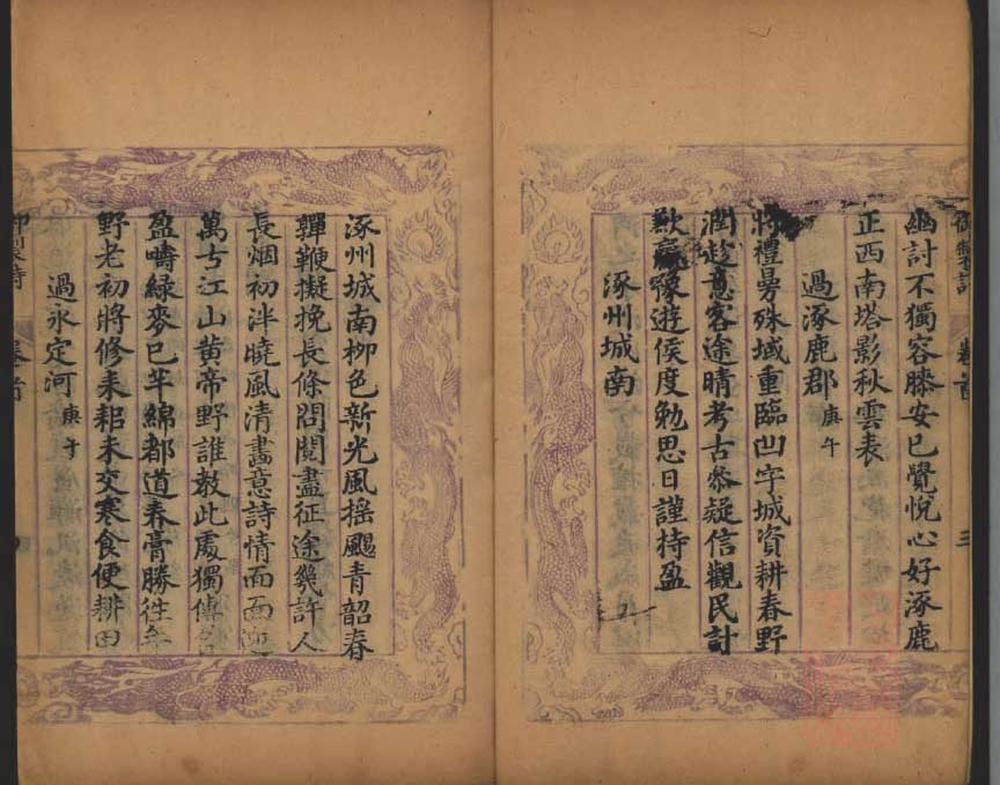 御製詩 卷首 三
幽討不獨容膝安已覺悅心好涿鹿
正西南塔影秋雲表
過涿鹿郡庚午
將禮曷殊域重臨凹字城資耕春野
潤趁意客途晴考古叅疑信觀民計
歉豫遊俟度勉思日謹持盈
涿州城南
涿州城南柳色新光風搖颺青韶春
嚲鞭擬挽長條問閱盡征途幾許人
長烟初泮曉風清畵意詩情面面
萬古江山黄帝野誰教此處獨傳
盈疇綠麥已芊綿都道春膏勝徃年
野老初將修耒耜未交寒食便耕田
過永定河庚午
御製詩 卷首